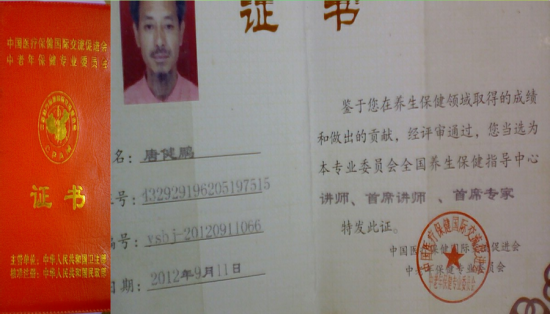 中国医疗保健国际交流促进会
中老年保健专业委员会
证书
主管单位：中华人民共和国卫生部
核准注册：中华人民共和国民政部
证书
名：唐健鹏
号：432929196205197515
号：ysbj-20120911066
日期：2012年9月11日
鉴于您在养生保健领域取得的成绩
和做出的贡献，经评审通过，您当选为
本专业委员会全国养生保健指导中心
讲师、首席讲师、首席专家
特发此证。
中国医疗保健国际交流促进会
中老年保健专业委员会